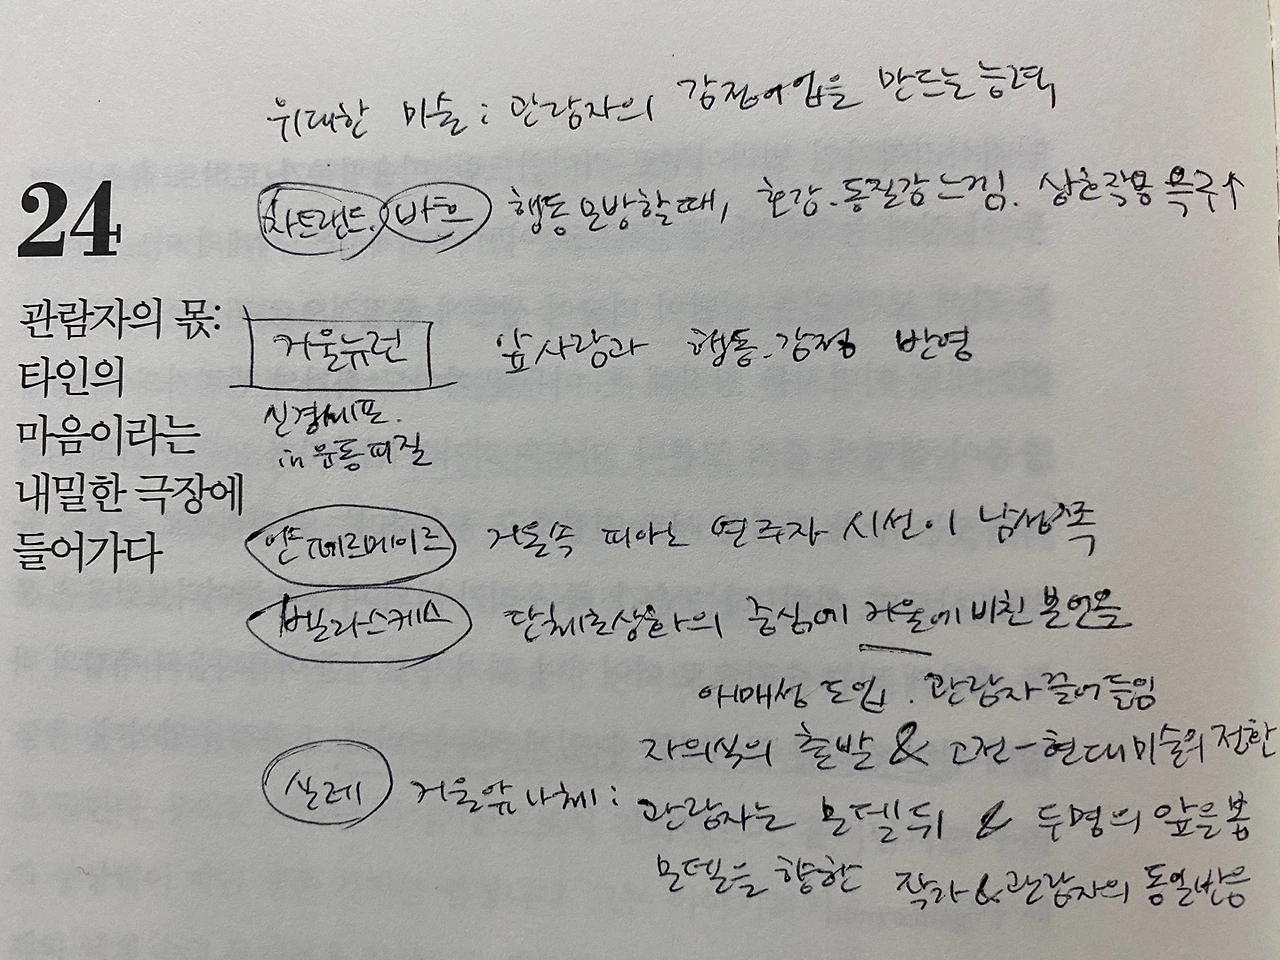 위대한 미술 : 관람자의 감정이입을 만드는 능력
24
관람자의 몫:
타인의
마음이라는
내밀한 극장에
들어가다
차트랜드. 바흐 행동 모방할 때, 호감.동질감 느낌. 상호작용 욕구↑
거울뉴런 앞사람과 행동.감정 반영
신경세포.
in 운동피질
얀 베르메이르 거울속 피아노 연주자 시선이 남성쪽
벨라스케스 단체초상화의 중심에 거울에 비친
애매성 도입. 관람자 끌어들임
자의식의 출발 & 고전-현대미술의 전환
실레 거울앞 나체 : 관람자는 모델 뒤 & 두명의 앞을 봄
모델을 향한 작가&관람자의 동일반응